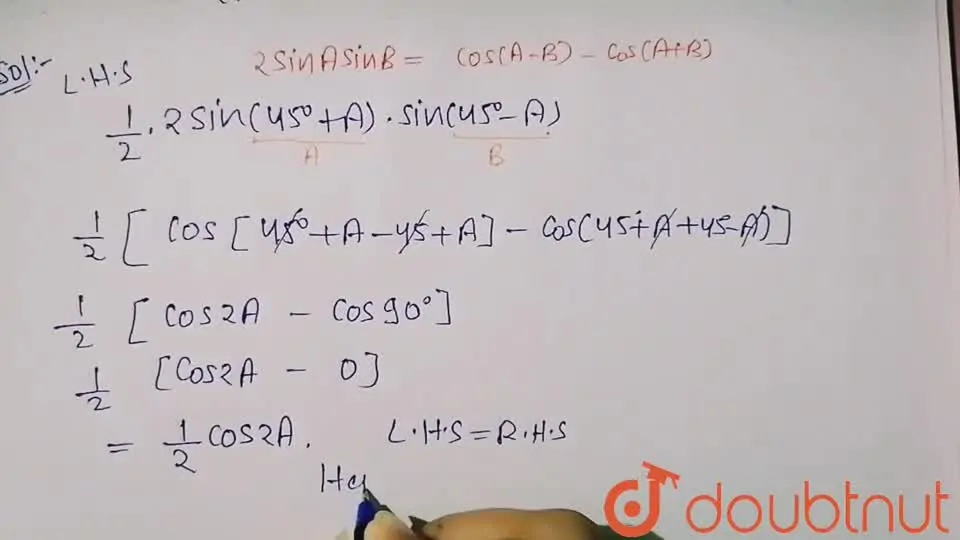 Sol:-
L.H.S
2SinASinB = Cos(A-B) - Cos(A+B)
1/2 . 2Sin(45°+A) . Sin(45°-A)
A B
1/2 [ Cos [45°+A-45+A] - Cos(45+A+45-A) ]
1/2 [ Cos2A - Cos90° ]
1/2 [Cos2A - 0]
= 1/2 Cos2A. L.H.S = R.H.S
doubtnut